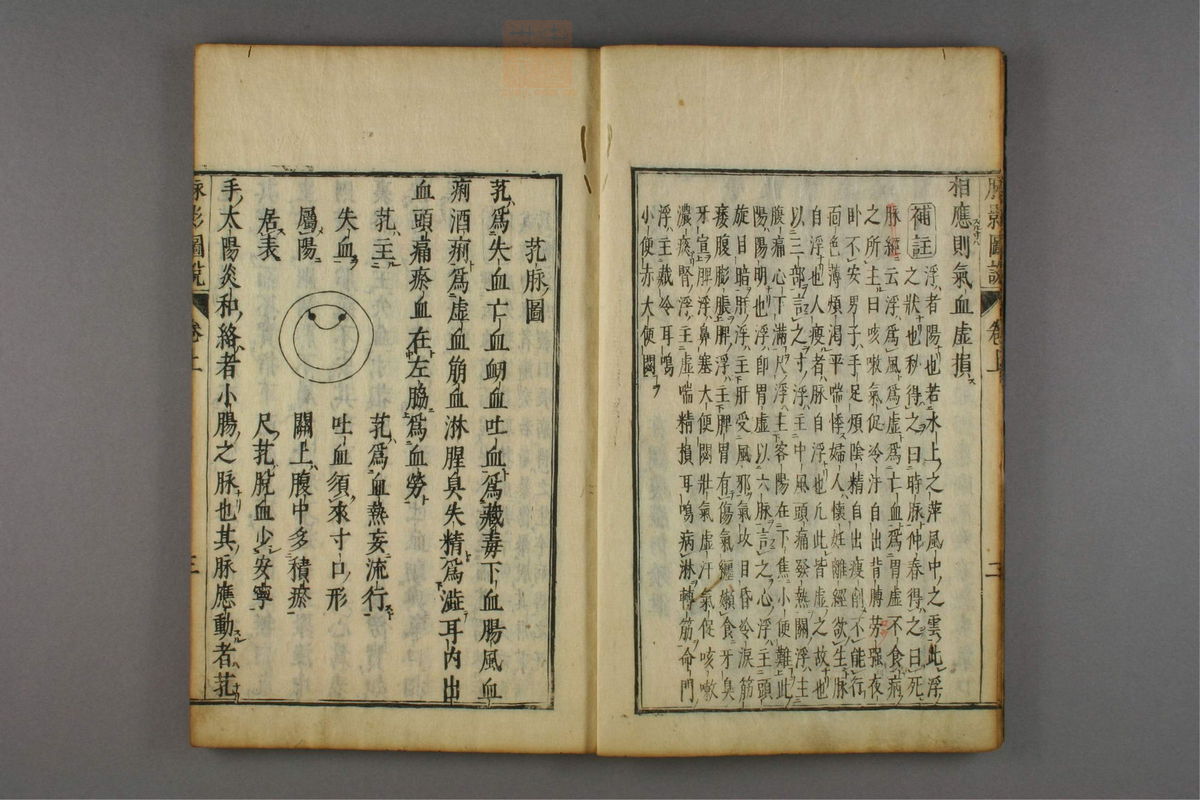 相應則氣血虛損
補註
浮者陽也若水上之萍風中之雲此浮
之狀也秋得之曰時脉仲春得之曰死
脉經云浮爲風爲虛爲亡血爲胃虛不食病
之所主曰咳嗽氣促冷汗自出背膊勞强夜
卧不安男子手足煩陰精自出瘦削不能行
面色薄煩渴平喘悸婦人懷姙離經欲生脉
自浮也人瘦者脉自浮也凢此皆虛之故也
以三部言之寸浮主中風頭痛發熱關浮主
腹痛心下滿尺浮主客陽在下焦小便難此
陽陽明也浮卽胃虛以六脉言之心浮主頭
旋目暗肝浮主肝受風邪氣攻目昏冷淚筋
痿腹膨脹脾浮主脾胃有傷氣纏嬾食牙臭
牙宣脾浮鼻塞大便閟壯氣虛汗氣促咳嗽
濃痰腎浮主虛喘精損耳鳴病淋轉筋命門
浮主藏冷耳鳴
小便赤大便閟
脉影圖說 卷上 二
芤脉圖
芤爲失血亡血衂血吐血爲藏毒下血腸風血
痢酒痢爲虛血筋血淋腥臭失精爲澁耳內出
血頭痛瘀血在左脇爲血勞
芤主
失血
屬陽
居表
芤爲血熱妄流行
吐血須來寸口形
關上腹中多積瘀
尺芤脫血少安寧
手太陽炎和絡者小腸之脉也其脉應動者芤
脉影圖說 卷上 三